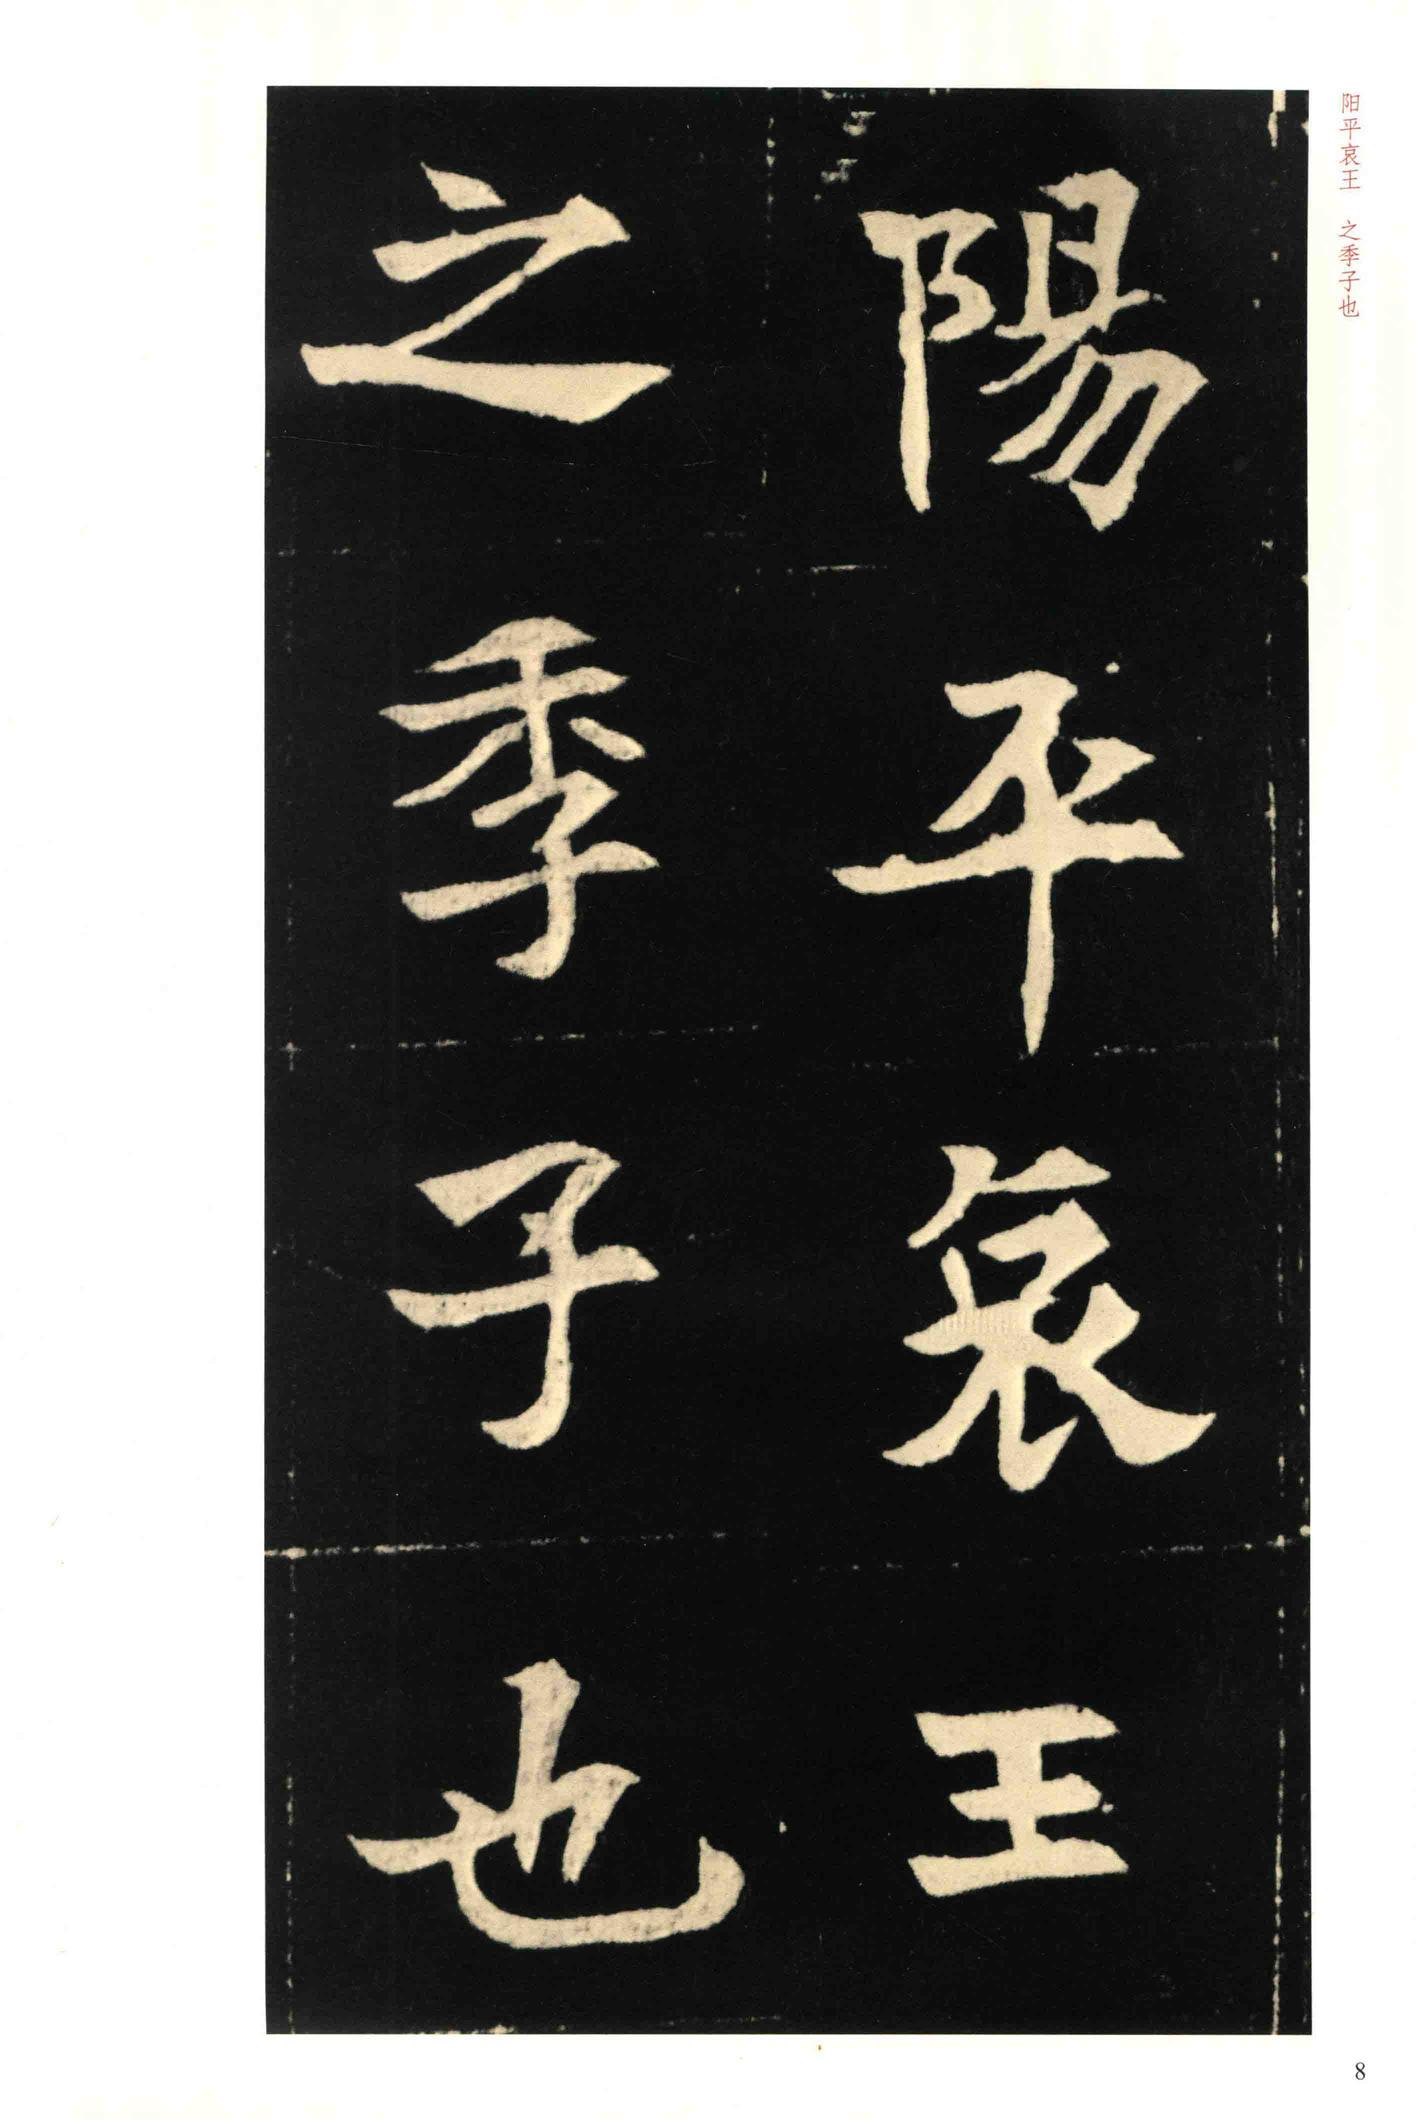 陽平哀王
之季子也
阳平哀王 之季子也
8